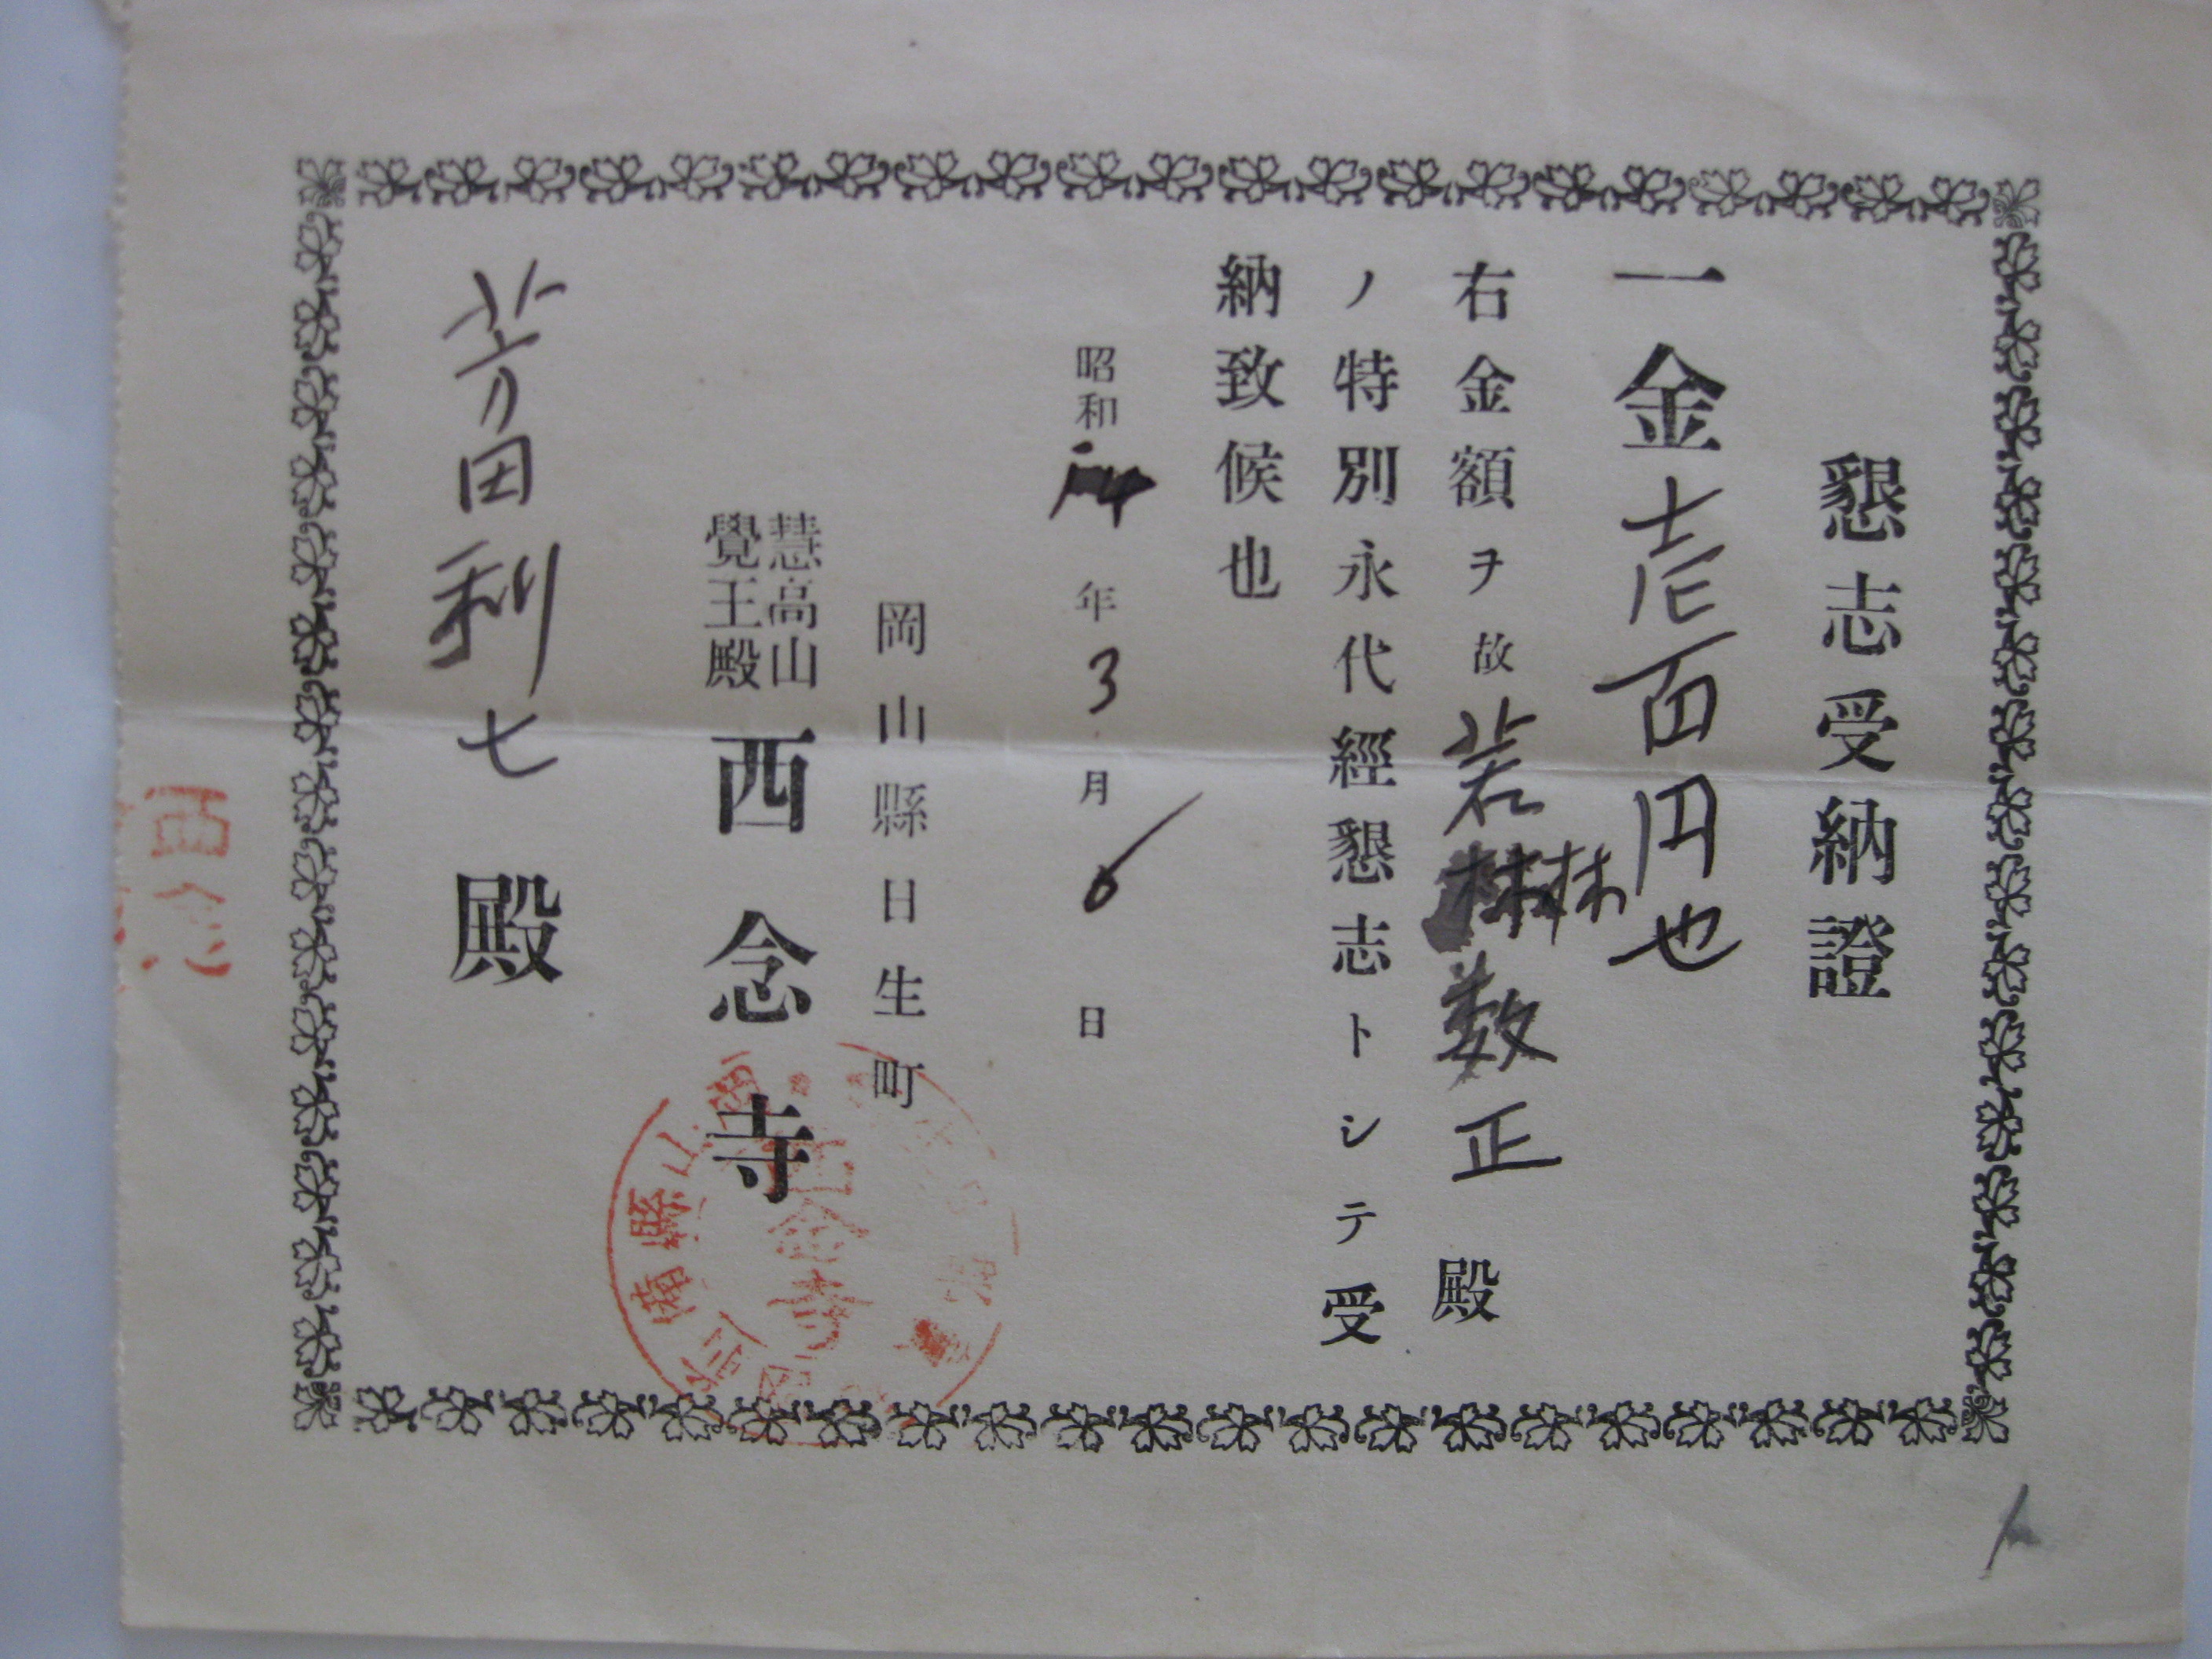 懇志受納證
一金壱百円也
右金額ヲ故若林数正殿
ノ特別永代經懇志トシテ受
納致候也
昭和 年3月6日
岡山縣日生町
慧高山
覺王殿
西念寺
芳田利七殿
西念